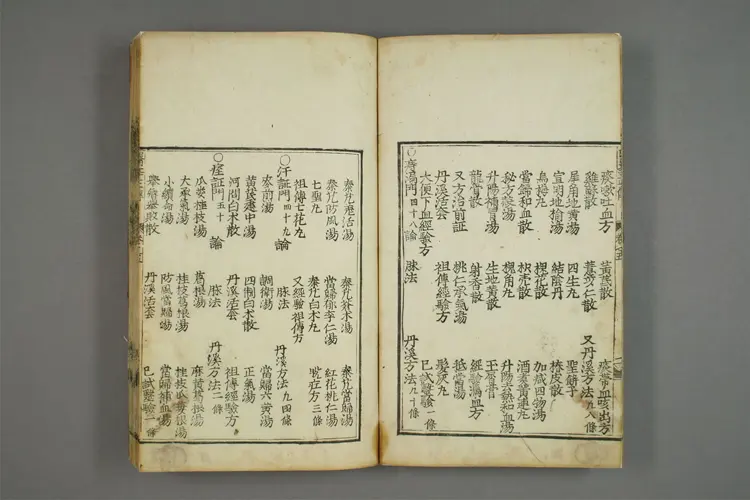 痰嗽吐血方 黃芪散
雞蘇散 薏苡仁散 又丹溪方法九八條
犀角地黃湯 四生丸 聖餅子
宣明地榆湯 結陰丹 椿皮散
烏梅丸 槐花散 加減四物湯
當歸和血散 枳壳散 酒煮黃連丸
槐角丸 升陽去熱和血湯
升陽補胃湯 生地黃散
龍骨散 射香散 經驗漏血方
又方治前証 桃仁承氣湯 抵當湯
丹溪活套 祖傳經驗方 髮灰丸
大便下血經驗方 已試醫驗一條
○痔漏門四十八論 脉法 丹溪方法九十條
秦艽蒼木湯 秦艽當歸湯
秦艽防風湯 當歸郁李仁湯 紅花桃仁湯
七聖丸 秦艽白木丸 脫疘方三條
祖傳七花丸 又經驗祖傳方
○汗証門四十九論 脉法 丹溪方法九四條
麥煎湯 調衛湯 當歸六黃湯
黃茋建中湯 四制白木散 正氣湯
河間白木散 丹溪活套 祖傳經驗方
○痓証門五十論 脉法 丹溪方法二條
瓜蔞桂枝湯 葛根湯 麻黃葛根湯
大承氣湯 桂枝葛根湯
小續命湯 防風當歸湯 當歸補血湯
丹溪活套 已試醫驗一條